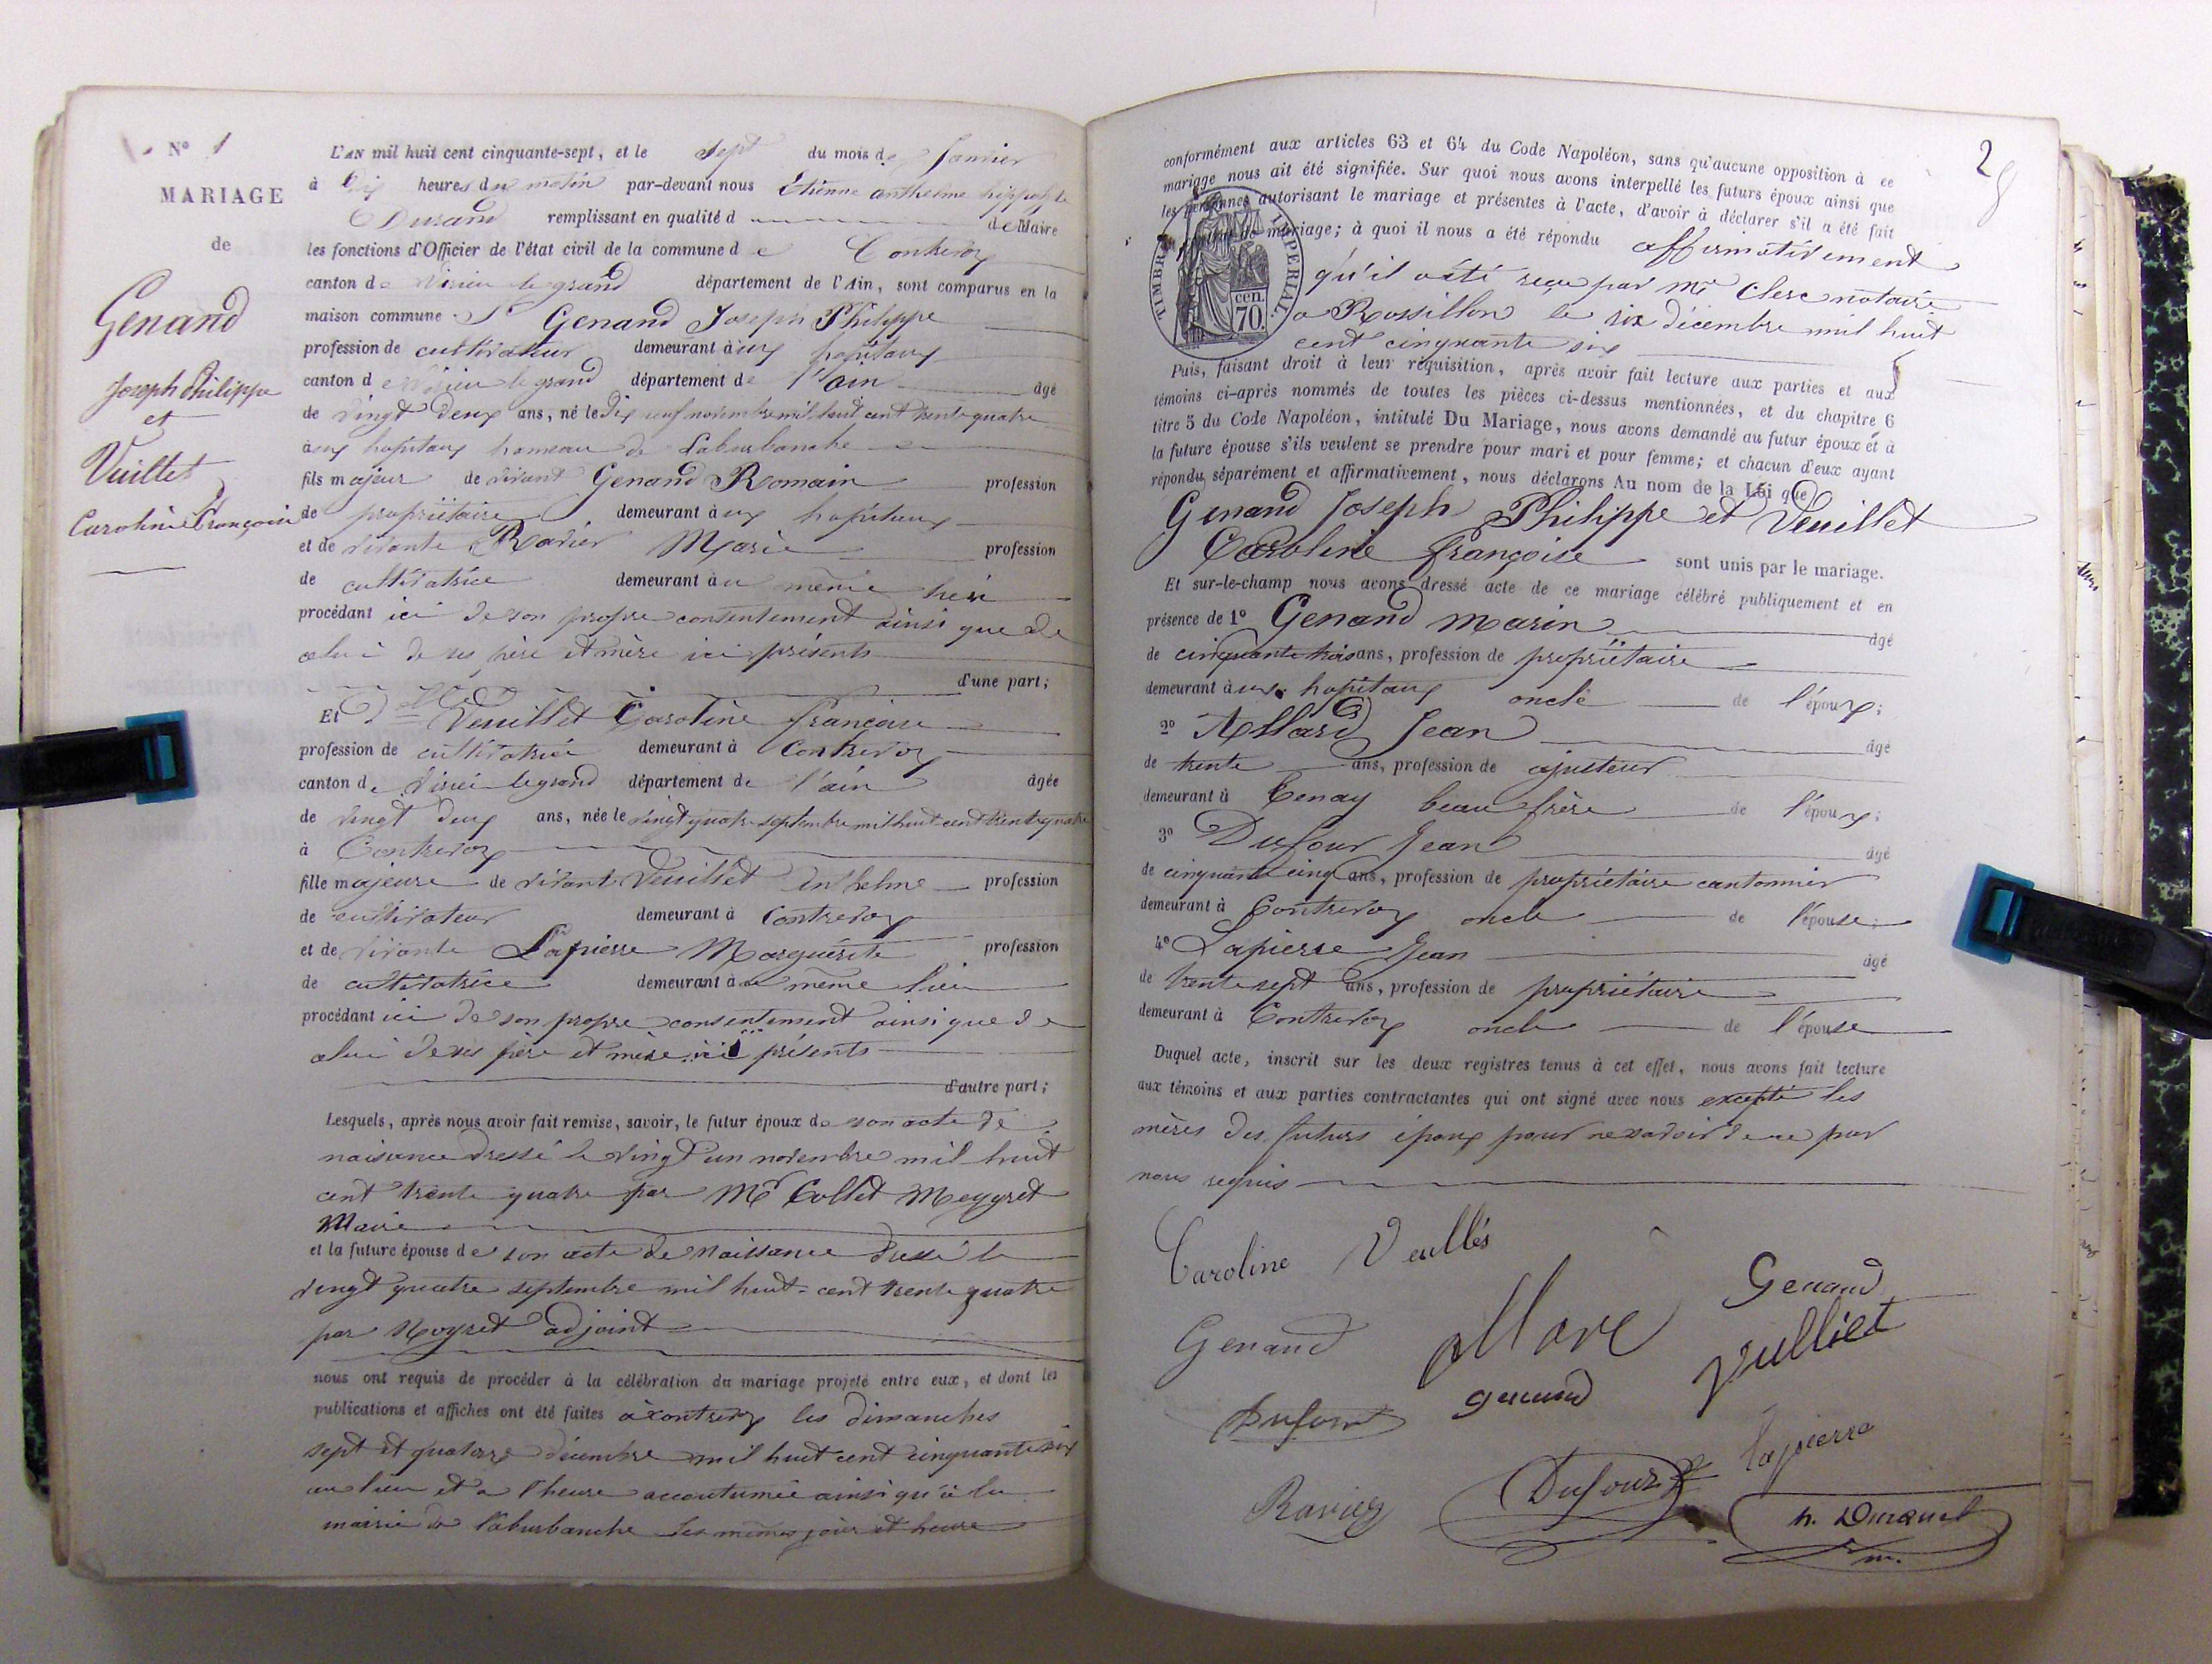 N° 1
MARIAGE
de
Genand
Joseph Philippe
et
Vuillet
Caroline Françoise
L'AN mil huit cent cinquante-sept, et le sept du mois de Janvier
à dix heures du matin par-devant nous Étienne anthelme hippolyte
Durand remplissant en qualité d de Maire
les fonctions d'Officier de l'état civil de la commune de Contrevoz
canton de Virieu le grand département de l'Ain, sont comparus en la
maison commune Sr Genand Joseph Philippe
profession de cultivateur demeurant aux hopitaux
canton de Virieu le grand département de l'ain âgé
de vingt deux ans, né le dix neuf novembre mil huit cent trente quatre
aux hopitaux hameau de Laburbanche
fils majeur de vivant Genand Romain profession
de propriétaire demeurant aux hopitaux
et de vivante Ravier Marie profession
de cultivatrice demeurant au même lieu
procédant ici de son propre consentement ainsi que de
celui de ses père et mère ici présents
d'une part;
Et Dlle Veuillet Caroline françoise
profession de cultivatrice demeurant à Contrevoz
canton de Virieu le grand département de l'ain âgée
de vingt deux ans, née le vingt quatre septembre mil huit cent trente quatre
à Contrevoz
fille majeure de vivant Veuillet Anthelme profession
de cultivateur demeurant à Contrevoz
et de vivante Lapierre Marguerite profession
de cultivatrice demeurant au même lieu
procédant ici de son propre consentement ainsi que de
celui de ses père et mère ici présents
d'autre part;
Lesquels, après nous avoir fait remise, savoir, le futur époux de son acte de
naissance dressé le vingt un novembre mil huit
cent trente quatre par Mr Collet Meygret
Maire
et la future épouse de son acte de naissance dressé le
vingt quatre septembre mil huit cent trente quatre
par Moyret adjoint
nous ont requis de procéder à la célébration du mariage projeté entre eux, et dont les
publications et affiches ont été faites à contrevoz les dimanches
sept et quatorze décembre mil huit cent cinquante six
au lieu et a l'heure accoutumée ainsi qu'à la
mairie de laburbanche les mêmes jour et heure
2
conformément aux articles 63 et 64 du Code Napoléon, sans qu'aucune opposition à ce
mariage nous ait été signifiée. Sur quoi nous avons interpellé les futurs époux ainsi que
les personnes autorisant le mariage et présentes à l'acte, d'avoir à déclarer s'il a été fait
de mariage; à quoi il nous a été répondu affirmativement
TIMBRE IMPERIAL
cen. 70.
qu'il a été reçu par Me Clerc notaire
a Rossillon le six décembre mil huit
cent cinquante six
Puis, faisant droit à leur réquisition, après avoir fait lecture aux parties et aux
témoins ci-après nommés de toutes les pièces ci-dessus mentionnées, et du chapitre 6
titre 5 du Code Napoléon, intitulé Du Mariage, nous avons demandé au futur époux et à
la future épouse s'ils veulent se prendre pour mari et pour femme; et chacun d'eux ayant
répondu séparément et affirmativement, nous déclarons Au nom de la Loi que
Genand Joseph Philippe et Veuillet
Caroline françoise sont unis par le mariage.
Et sur-le-champ nous avons dressé acte de ce mariage célébré publiquement et en
présence de 1° Genand Marin âgé
de cinquante trois ans, profession de propriétaire
demeurant aux hopitaux oncle de l'époux;
2° Allard Jean âgé
de trente ans, profession de ajusteur
demeurant à Tenay beau frère de l'époux;
3° Dufour Jean âgé
de cinquante cinq ans, profession de propriétaire cantonnier
demeurant à Contrevoz oncle de l'épouse;
4° Lapierre Jean âgé
de trente sept ans, profession de propriétaire
demeurant à Contrevoz oncle de l'épouse
Duquel acte, inscrit sur les deux registres tenus à cet effet, nous avons fait lecture
aux témoins et aux parties contractantes qui ont signé avec nous excepté les
mères des futurs époux pour ne savoir de ce par
nous requis
Caroline Veullés
Genand
Genand allard Vulliet
Dufour genand
lapierre
Ravier Dufour h. Durand
m.